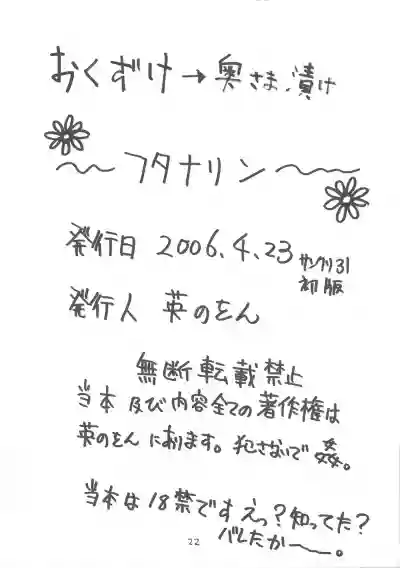 おくずけ→奥さま漬け
～フタナリン～
発行日 2006.4.23 サンクリ31
初版
発行人 英のをん
無断転載禁止
当本及び内容全ての著作権は
英のをんにあります。犯さないで姦。
当本は18禁ですえっ?知ってた?
バレたかー。
22